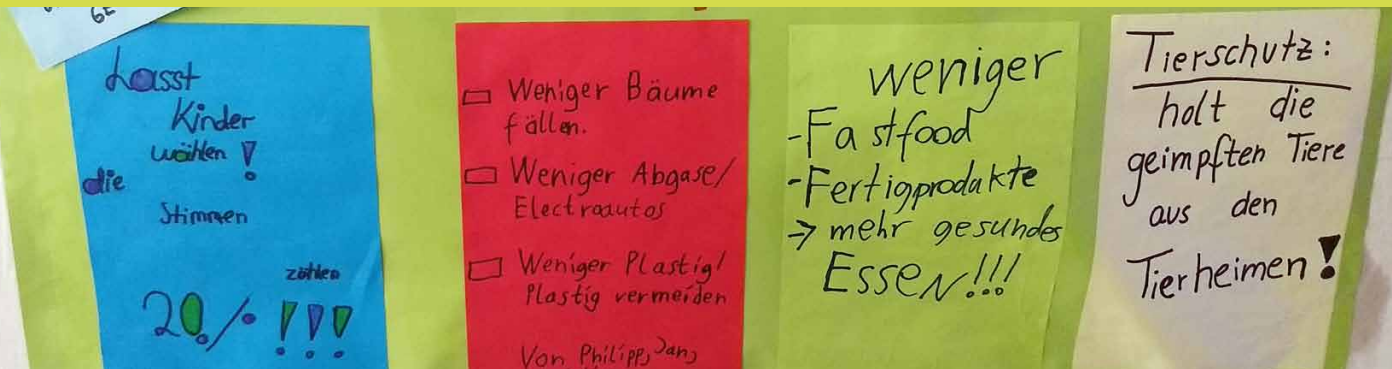 GE
Lasst
Kinder
wählen !
die
Stimmen
zählen
20% !!!
Weniger Bäume
fällen.
Weniger Abgase/
Electroautos
Weniger Plastig/
Plastig vermeiden
Von Philipp, Jan,
weniger
-Fastfood
-Fertigprodukte
→ mehr gesundes
Essen!!!
Tierschutz:
holt die
geimpften Tiere
aus den
Tierheimen!